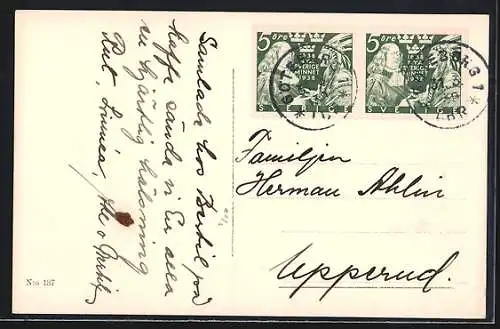 Samlade hos Bertil på
kaffe sända vi Er alla
en hjärtlig hälsning
Rut, Linnéa, Ada o Bertil
N:o 187
5 ÖRE
1638
N.S.V.A.
SVERIGE
MINNET
1938
SVERIGE
5 ÖRE
1638
N.S.V.A.
SVERIGE
MINNET
1938
SVERIGE
GÖTEBORG 1
LBR
Familjen
Herman Ahlin
Upperud.